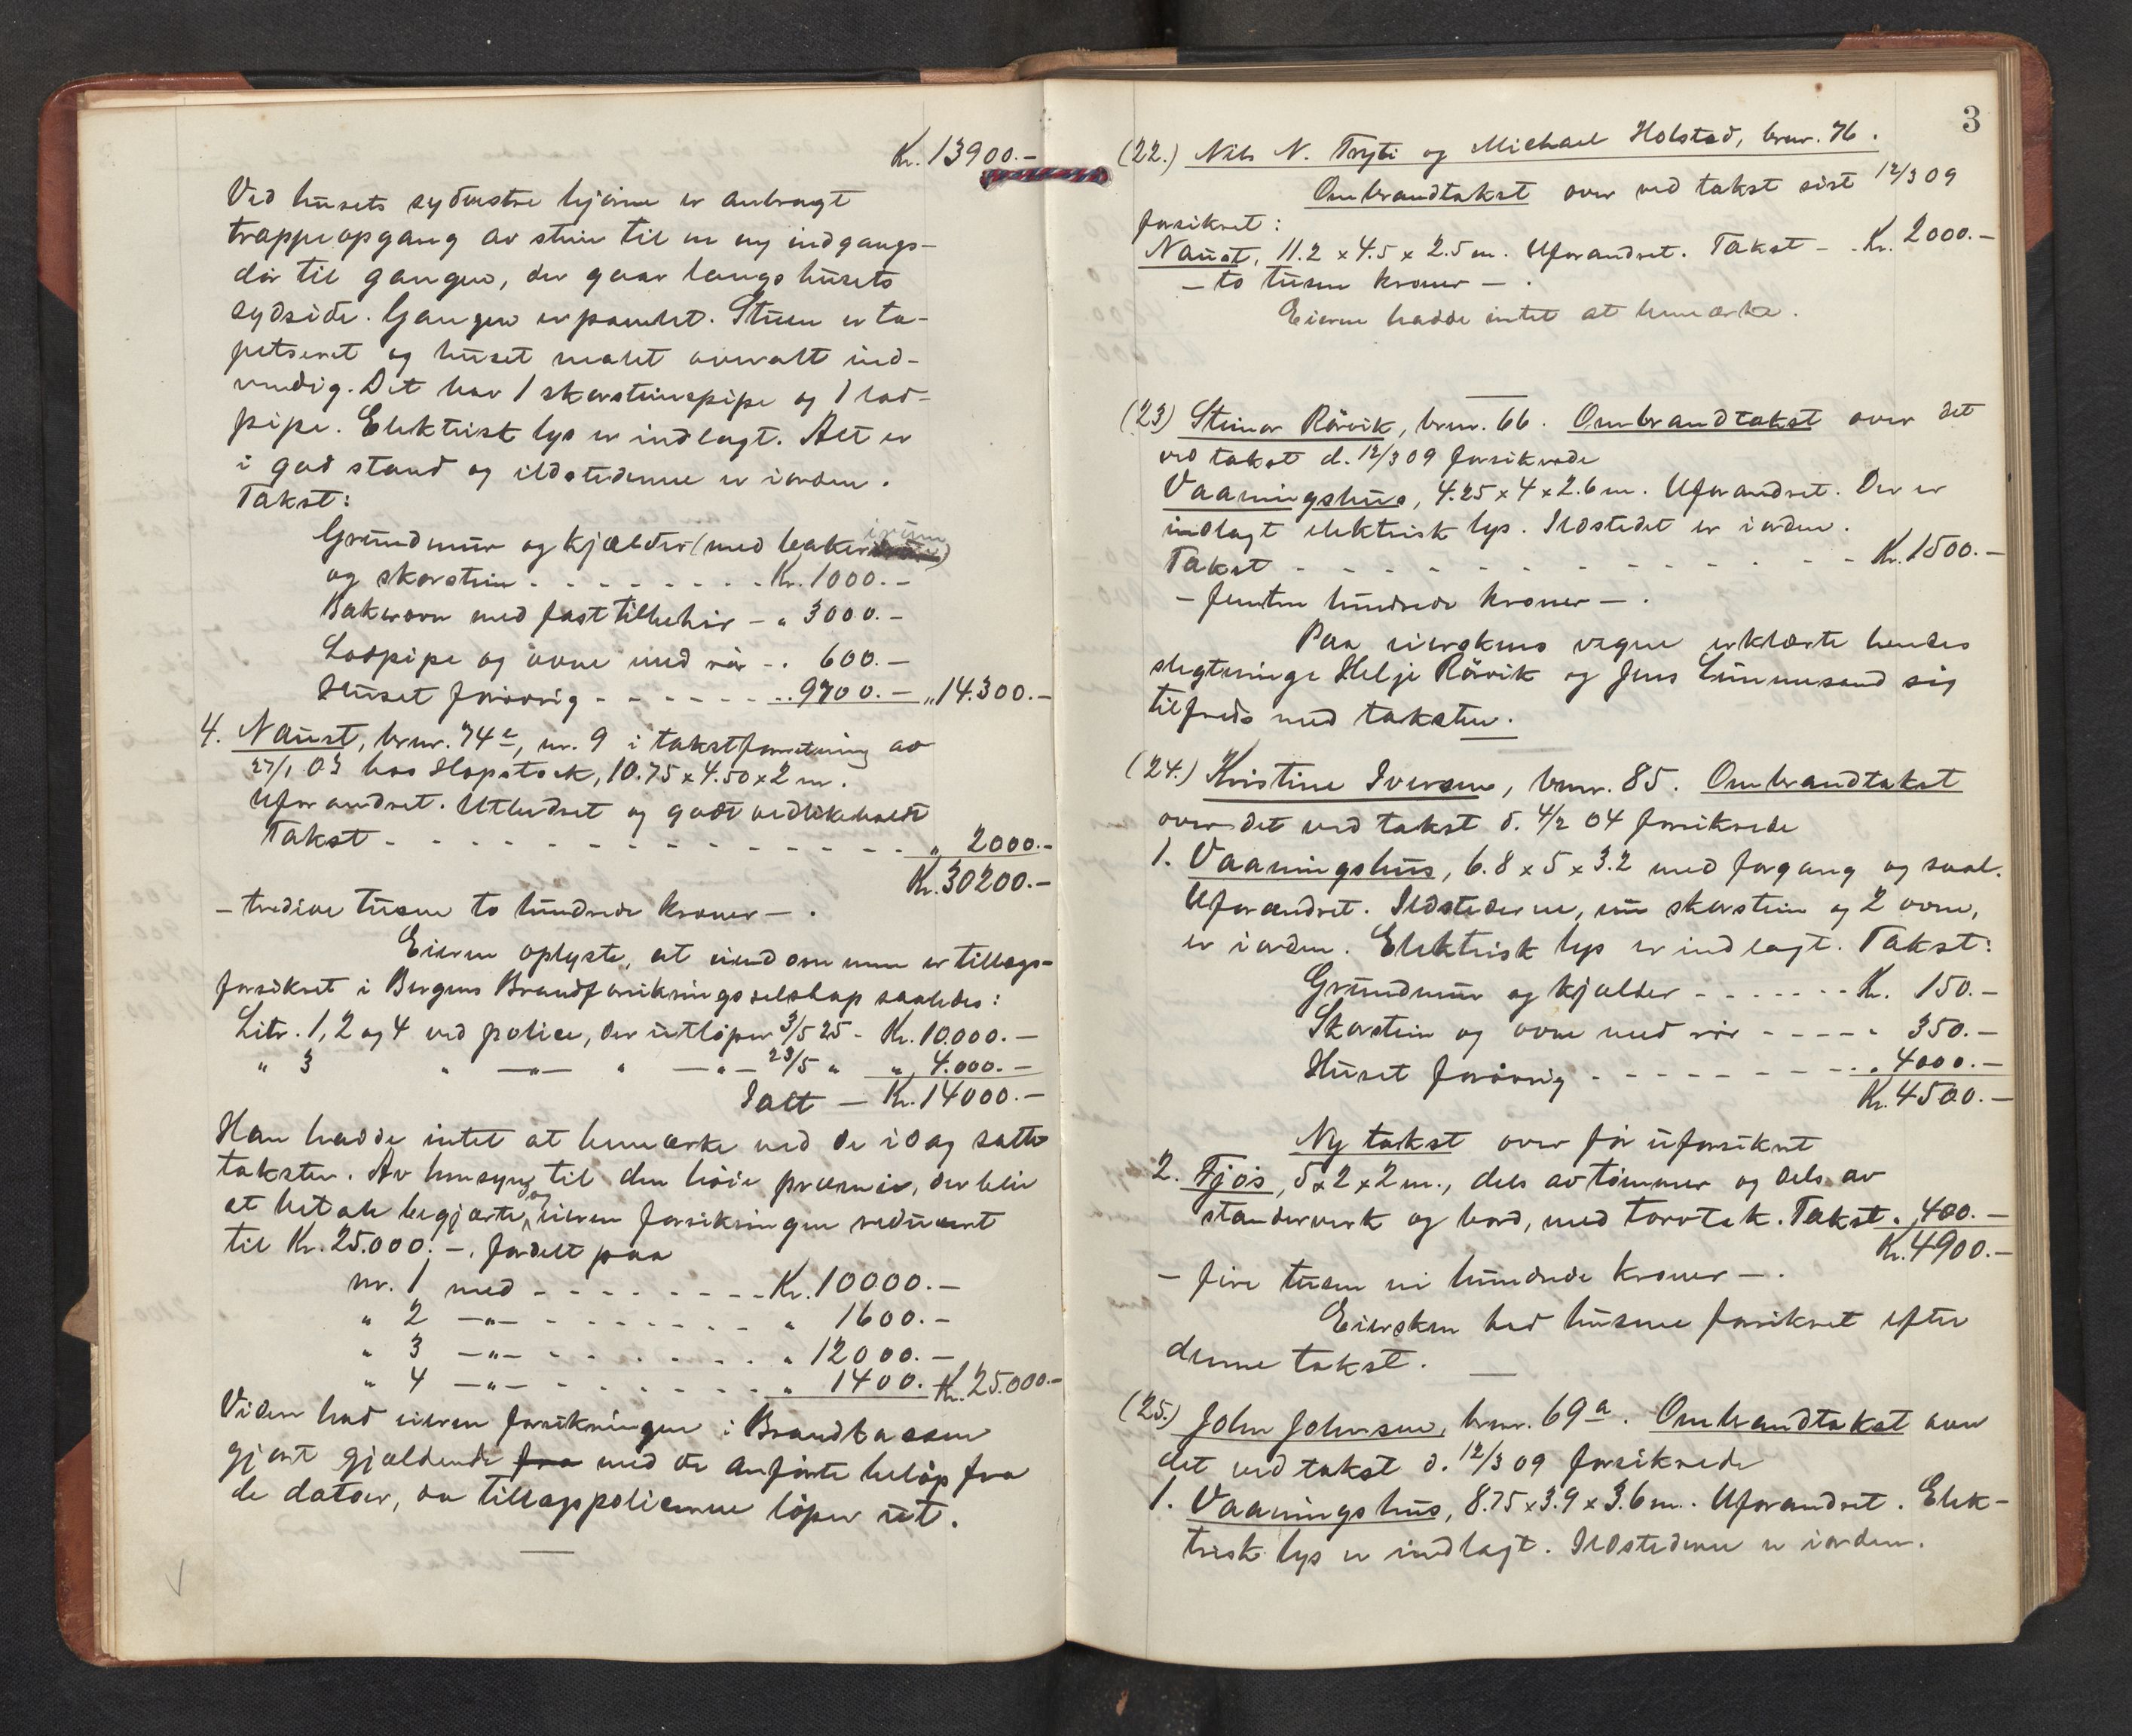 Kr. 13900.-
Ved husets sydvestre hjörne er anbragt
trappeopgang av sten til en ny indgangs-
dör til gangen, der gaar langs husets
sydside. Gangen er panelet. Stuen er ta-
petseret og huset malet overalt ind-
vendig. Det har 1 skorstenspipe og 1 lod-
pipe. Elektrisk lys er indlagt. Alt er
i god stand og ildstederne er i orden.
Takst:
Grundmur og kjælder (med bakeri
og skorstein - - - - - - - Kr. 1000.-
Bakerovn med fast tilbehör - „ 3000.-
Lodpipe og ovne med rör - „ 600.-
Huset forövrig - - - - - - „ 9700.- „ 14.300.-
4. Naust, brnr. 74e, nr. 9 i takstforretning av
27/1 03 hos Hopstock, 10.75 x 4.50 x 2 m.
Uforandret. Utbedret og godt vedlikeholdt
Takst - - - - - - - - - - - - - - „ 2000.-
Kr. 30200.-
- tredive tusen to hundrede kroner -.
Eieren oplyste, at eiendommen er tillægs-
forsikret i Bergens Brandforsikringsselskap saaledes:
Litr. 1, 2 og 4 ved police, der utlöper 3/5 25 - Kr. 10.000.-
„ 3 „ -„- „ -„- 23/5 „ „ 4.000.-
Ialt - Kr. 14000.-
Han hadde intet at bemerke ved de idag satte
takster. Av hensyn til den höie præmie, der blir
at betale begjærte og eieren forsikringen reducert
til Kr. 25.000.-, fordelt paa
nr. 1 med - - - - - - - - Kr. 10000.-
„ 2 -„- - - - - - - - „ 1600.-
„ 3 -„- - - - - - - - „ 12000.-
„ 4 -„- - - - - - - - „ 1400. Kr. 25.000.-
Videre bad eieren forsikringen i Brandkassen
gjort gjældende fra med de anförte belöp fra
de datoer, da tillægspolicerne löper ut.
3
(22.) Nils N. Tryti og Michael Holstad, brnr. 76.
Ombrandtakst over ved takst sist 12/3 09
forsikret:
Naust, 11.2 x 4.5 x 2.5 m. Uforandret. Takst - - Kr. 2000.-
- to tusen kroner -.
Eierne hadde intet at bemærke.
(23) Steinar Rörvik, brnr. 66. Ombrandtakst over det
ved takst d. 12/3 09 forsikrede
Vaaningshus, 4.25 x 4 x 2.6 m. Uforandret. Der er
indlagt elektrisk lys. Ildstedet er i orden.
Takst - - - - - - - - - - - - - - Kr. 1500.-
- femten hundrede kroner -.
Paa eierskens vegne erklærte hendes
slegtninge Helje Rörvik og Jens Sunnesund sig
tilfreds med taksten.
(24.) Kristine Iversen, brnr. 85. Ombrandtakst
over det ved takst d. 4/2 04 forsikrede
1. Vaaningshus, 6.8 x 5 x 3.2 med forgang og sval.
Uforandret. Ildstederne, en skorstein og 2 ovne,
er i orden. Elektrisk lys er indlagt. Takst:
Grundmur og kjælder - - - - - - Kr. 150.-
Skorstein og ovne med rör - - - - „ 350.-
Huset forövrig - - - - - - - - - „ 4000.-
Kr. 4500.-
Ny takst over för uforsikret
2. Fjös, 5 x 2 x 2 m., dels av tömmer og dels av
standerverk og bord, med torvtak. Takst „ 400.-
Kr. 4900.-
- fire tusen ni hundrede kroner -.
Eiersken bad husene forsikret efter
denne takst.
(25.) John Johnsen, brnr. 69a. Ombrandtakst over
det ved takst d. 12/3 09 forsikrede
1. Vaaningshus, 8.75 x 3.9 x 3.6 m. Uforandret. Elek-
trisk lys er indlagt. Ildstederne er i orden.